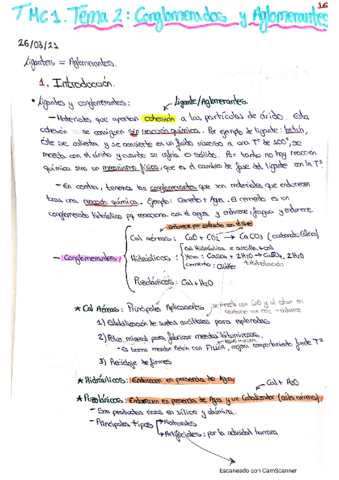 16
TMC1. Tema 2: Conglomerados y Aglomerantes
26/03/21
Ligantes = Aglomerantes.
1. Introducción.
· Ligantes y conglomerantes: Ligante/Aglomerantes.
- Materiales que aportan cohesión a las partículas de árido. Esta
cohesión se consiguen sin reacción química. Por ejemplo de ligante: betún,
éste se calienta y se convierte en un fluido viscoso a una Tª de 100°, se
mezcla con el árido y cuando se enfría es sólido. Por tanto no hay reacción
química sino un mecanismo físico, que es el cambio de fase del ligante con la Tª
- En cambio, tenemos los conglomerantes que son materiales que endurecen
tras una reacción química. Ejemplo: Cemento + Agua. El cemento es un
conglomerante hidráulico pq reacciona con el agua y
Endurece por contacto con el aire
Cal aéreas: CaO + CO2 → CaCO3 (carbonato cálcico)
- Conglomerantes
Hidráulicos:
Cal Hidráulica = arcilla + cal
Yeso:
cemento: Clinker
Puzolánicos: Cal + H2O
★ Cal Aéreas: Principales Aplicaciones
1) Estabilización de suelos arcillosos para explanadas
2) Polvo mineral para fabricar mezclas bituminosas.
3) Reciclaje de firmes
★ Hidráulicos: Endurecen en presencia de Agua
Cal + H2O
★ Puzolánicos: Endurecen en presencia de Agua y un Catalizador (cales mínimo)
- Son productos ricos en sílice y alúmina.
- Principales tipos
Naturales
Artificiales: por la actividad humana
Escaneado con CamScanner